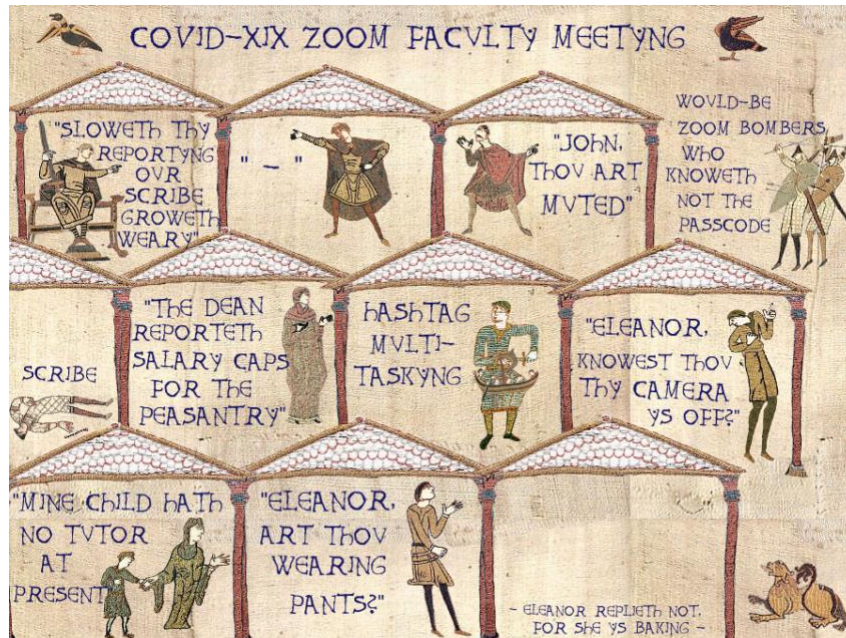 COVID-XIX ZOOM FACVLTY MEETYNG
"SLOWETH THY
REPORTYNG
OVR
SCRIBE
GROWETH
WEARY"
" – "
"JOHN,
THOV ART
MVTED"
WOVLD-BE
ZOOM BOMBERS
WHO
KNOWETH
NOT THE
PASSCODE
SCRIBE
"THE DEAN
REPORTETH
SALARY CAPS
FOR THE
PEASANTRY"
HASHTAG
MVLTI-
TASKYNG
"ELEANOR,
KNOWEST THOV
THY CAMERA
YS OFF?"
"MINE CHILD HATH
NO TVTOR
AT
PRESENT"
"ELEANOR,
ART THOV
WEARING
PANTS?"
- ELEANOR REPLIETH NOT,
FOR SHE YS BAKING -